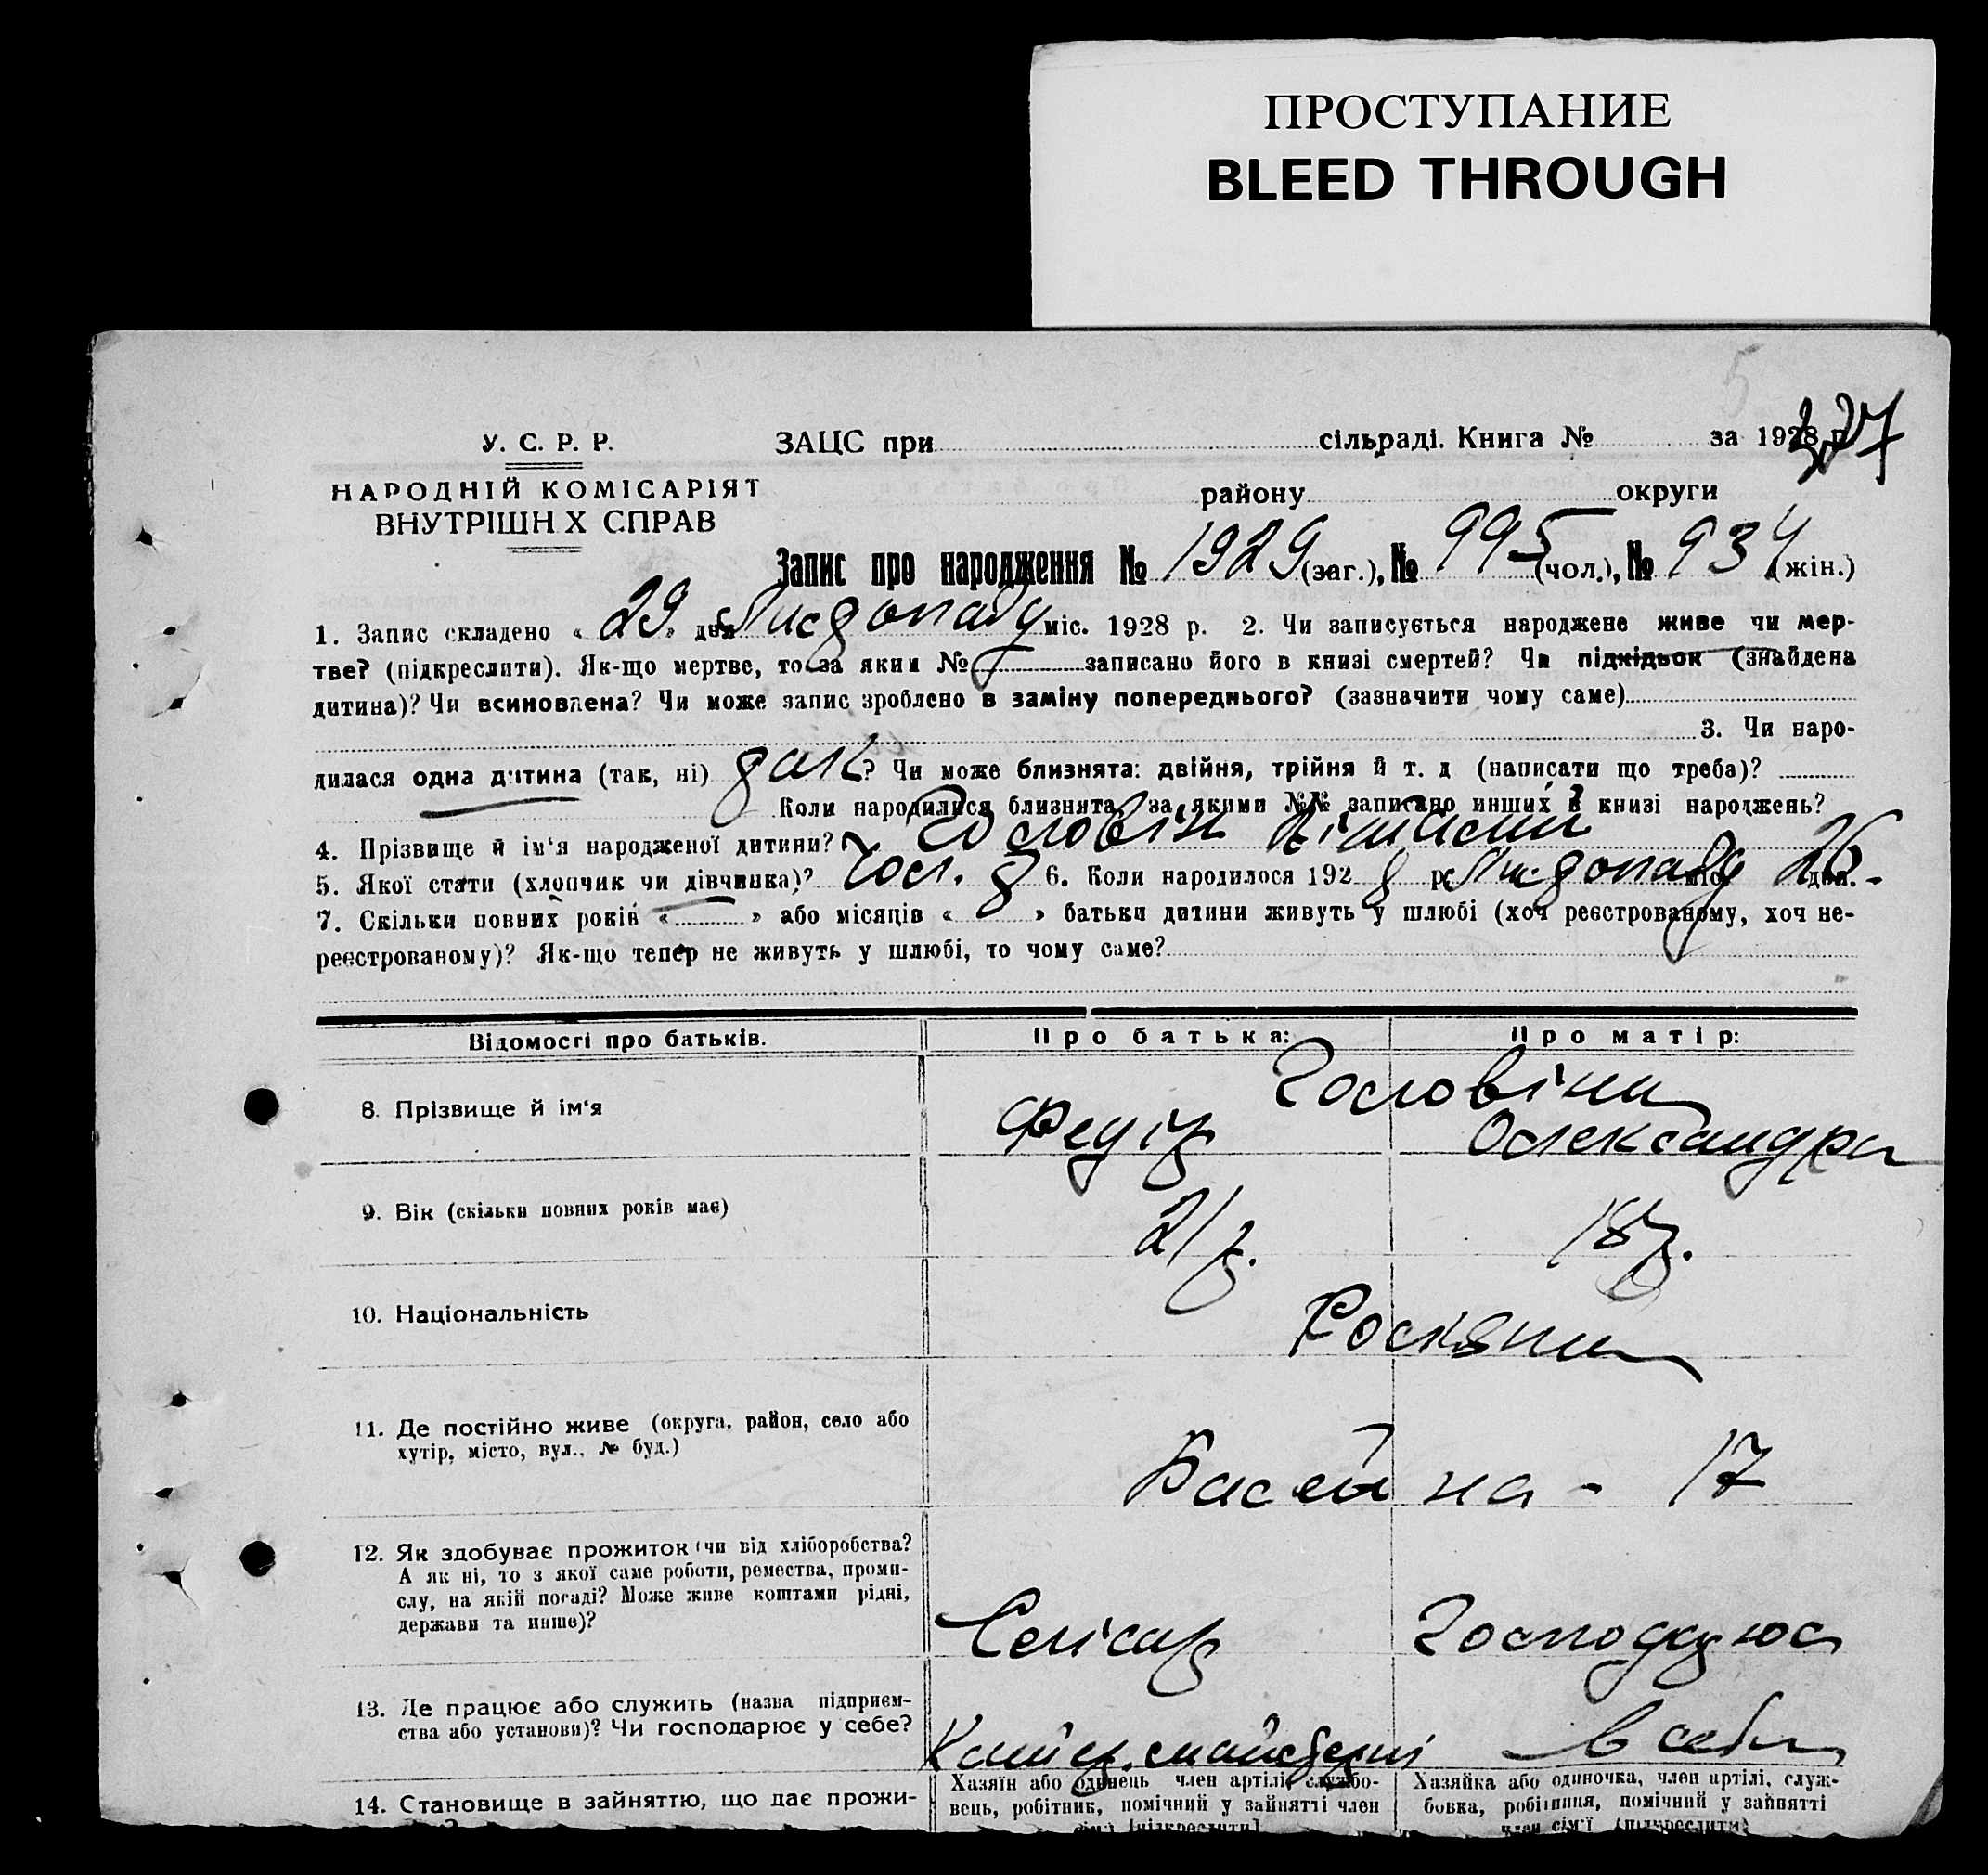 ПРОСТУПАНИЕ
BLEED THROUGH
5
377
У. С. Р. Р.
ЗАЦС при сільраді. Книга № за 1928 р.
НАРОДНІЙ КОМІСАРІЯТ
ВНУТРІШН Х СПРАВ
району округи
Запис про народження № 1929 (заг.), № 995 (чол.), № 934 (жін.)
1. Запис складено « 29 » дня Листопаду міс. 1928 р. 2. Чи записується народжене живе чи мер-
тве? (підкреслити). Як-що мертве, то за яким № записано його в книзі смертей? Чи підкідьок (знайдена
дитина)? Чи всиновлена? Чи може запис зроблено в заміну попереднього? (зазначити чому саме)
3. Чи наро-
дилася одна дитина (так, ні) так? Чи може близнята: двійня, трійня й т. д (написати що треба)?
Коли народилися близнята, за якими №№ записано инших в книзі народжень?
4. Прізвище й ім'я народженої дитини? Головін
5. Якої стати (хлопчик чи дівчинка)? Чол. 6. Коли народилося 192 8 р. Листопаду міс. 26 дня.
7. Скільки повних років « » або місяців « » батьки дитини живуть у шлюбі (хоч реєстрованому, хоч не-
реєстрованому)? Як-що тепер не живуть у шлюбі, то чому саме?
Відомості про батьків.
Про батька:
Про матір:
8. Прізвище й ім'я
Головіни
Федір
Олександра
9. Вік (скільки повних років має)
21 р.
18 р.
10. Національність
Росіяни
11. Де постійно живе (округа, район, село або
хутір, місто, вул., № буд.)
Басейна - 17
12. Як здобуває прожиток (чи від хліборобства?
А як ні, то з якої саме роботи, ремества, проми-
слу, на якій посаді? Може живе коштами рідні,
держави та инше)?
Слюсар
Господарює
13. Де працює або служить (назва підприєм-
ства або установи)? Чи господарює у себе?
майстерні
в себе
14. Становище в зайняттю, що дає прожи-
Хазяїн або одинець член артілі, службо-
вець, робітник, помічний у зайнятті член
сім'ї [підкреслити]
Хазяйка або одиночка, член артілі, служ-
бовка, робітниця, помічний у зайнятті
член сім'ї (підкреслити)